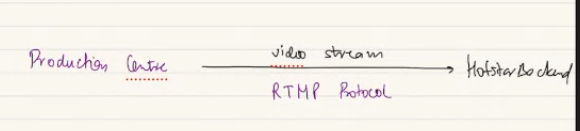 Production Centre
video stream
RTMP Protocol
Hotstar Backend